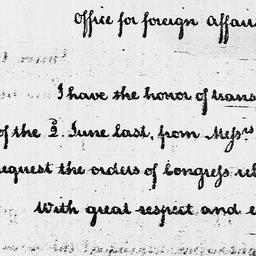 Office for foreign Affairs
I have the honor of trans
of the 2. June last, from Messrs
request the orders of Congress rel
With great respect and e